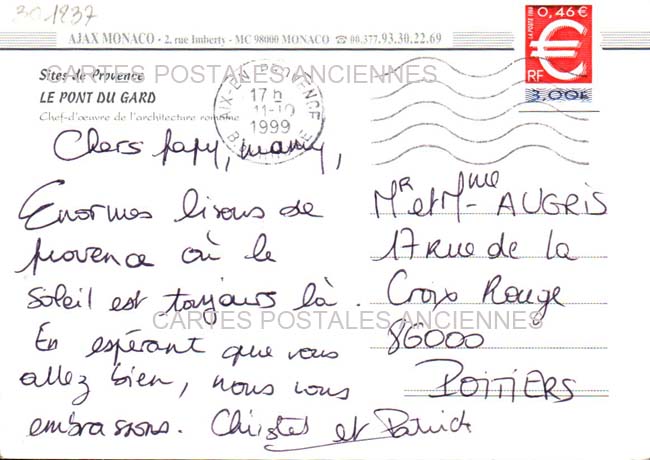 30.1237
AJAX MONACO - 2, rue Imberty - MC 98000 MONACO ☎ 00.377.93.30.22.69
CARTES POSTALES ANCIENNES
Sites de Provence
LE PONT DU GARD
Chef-d'œuvre de l'architecture romaine
AIX-EN-PROVENCE
17 h
11-10
1999
0,46 €
LA POSTE 1999
€
RF
3,00F
Chers papy, mamy,
Enormes bisous de
provence où le
soleil est toujours là.
En espérant que vous
allez bien, nous vous
embrassons. Christel et Patrick
Mr et Mme AUGRIS
17 rue de la
Croix Rouge
86000
POITIERS
CARTES POSTALES ANCIENNES